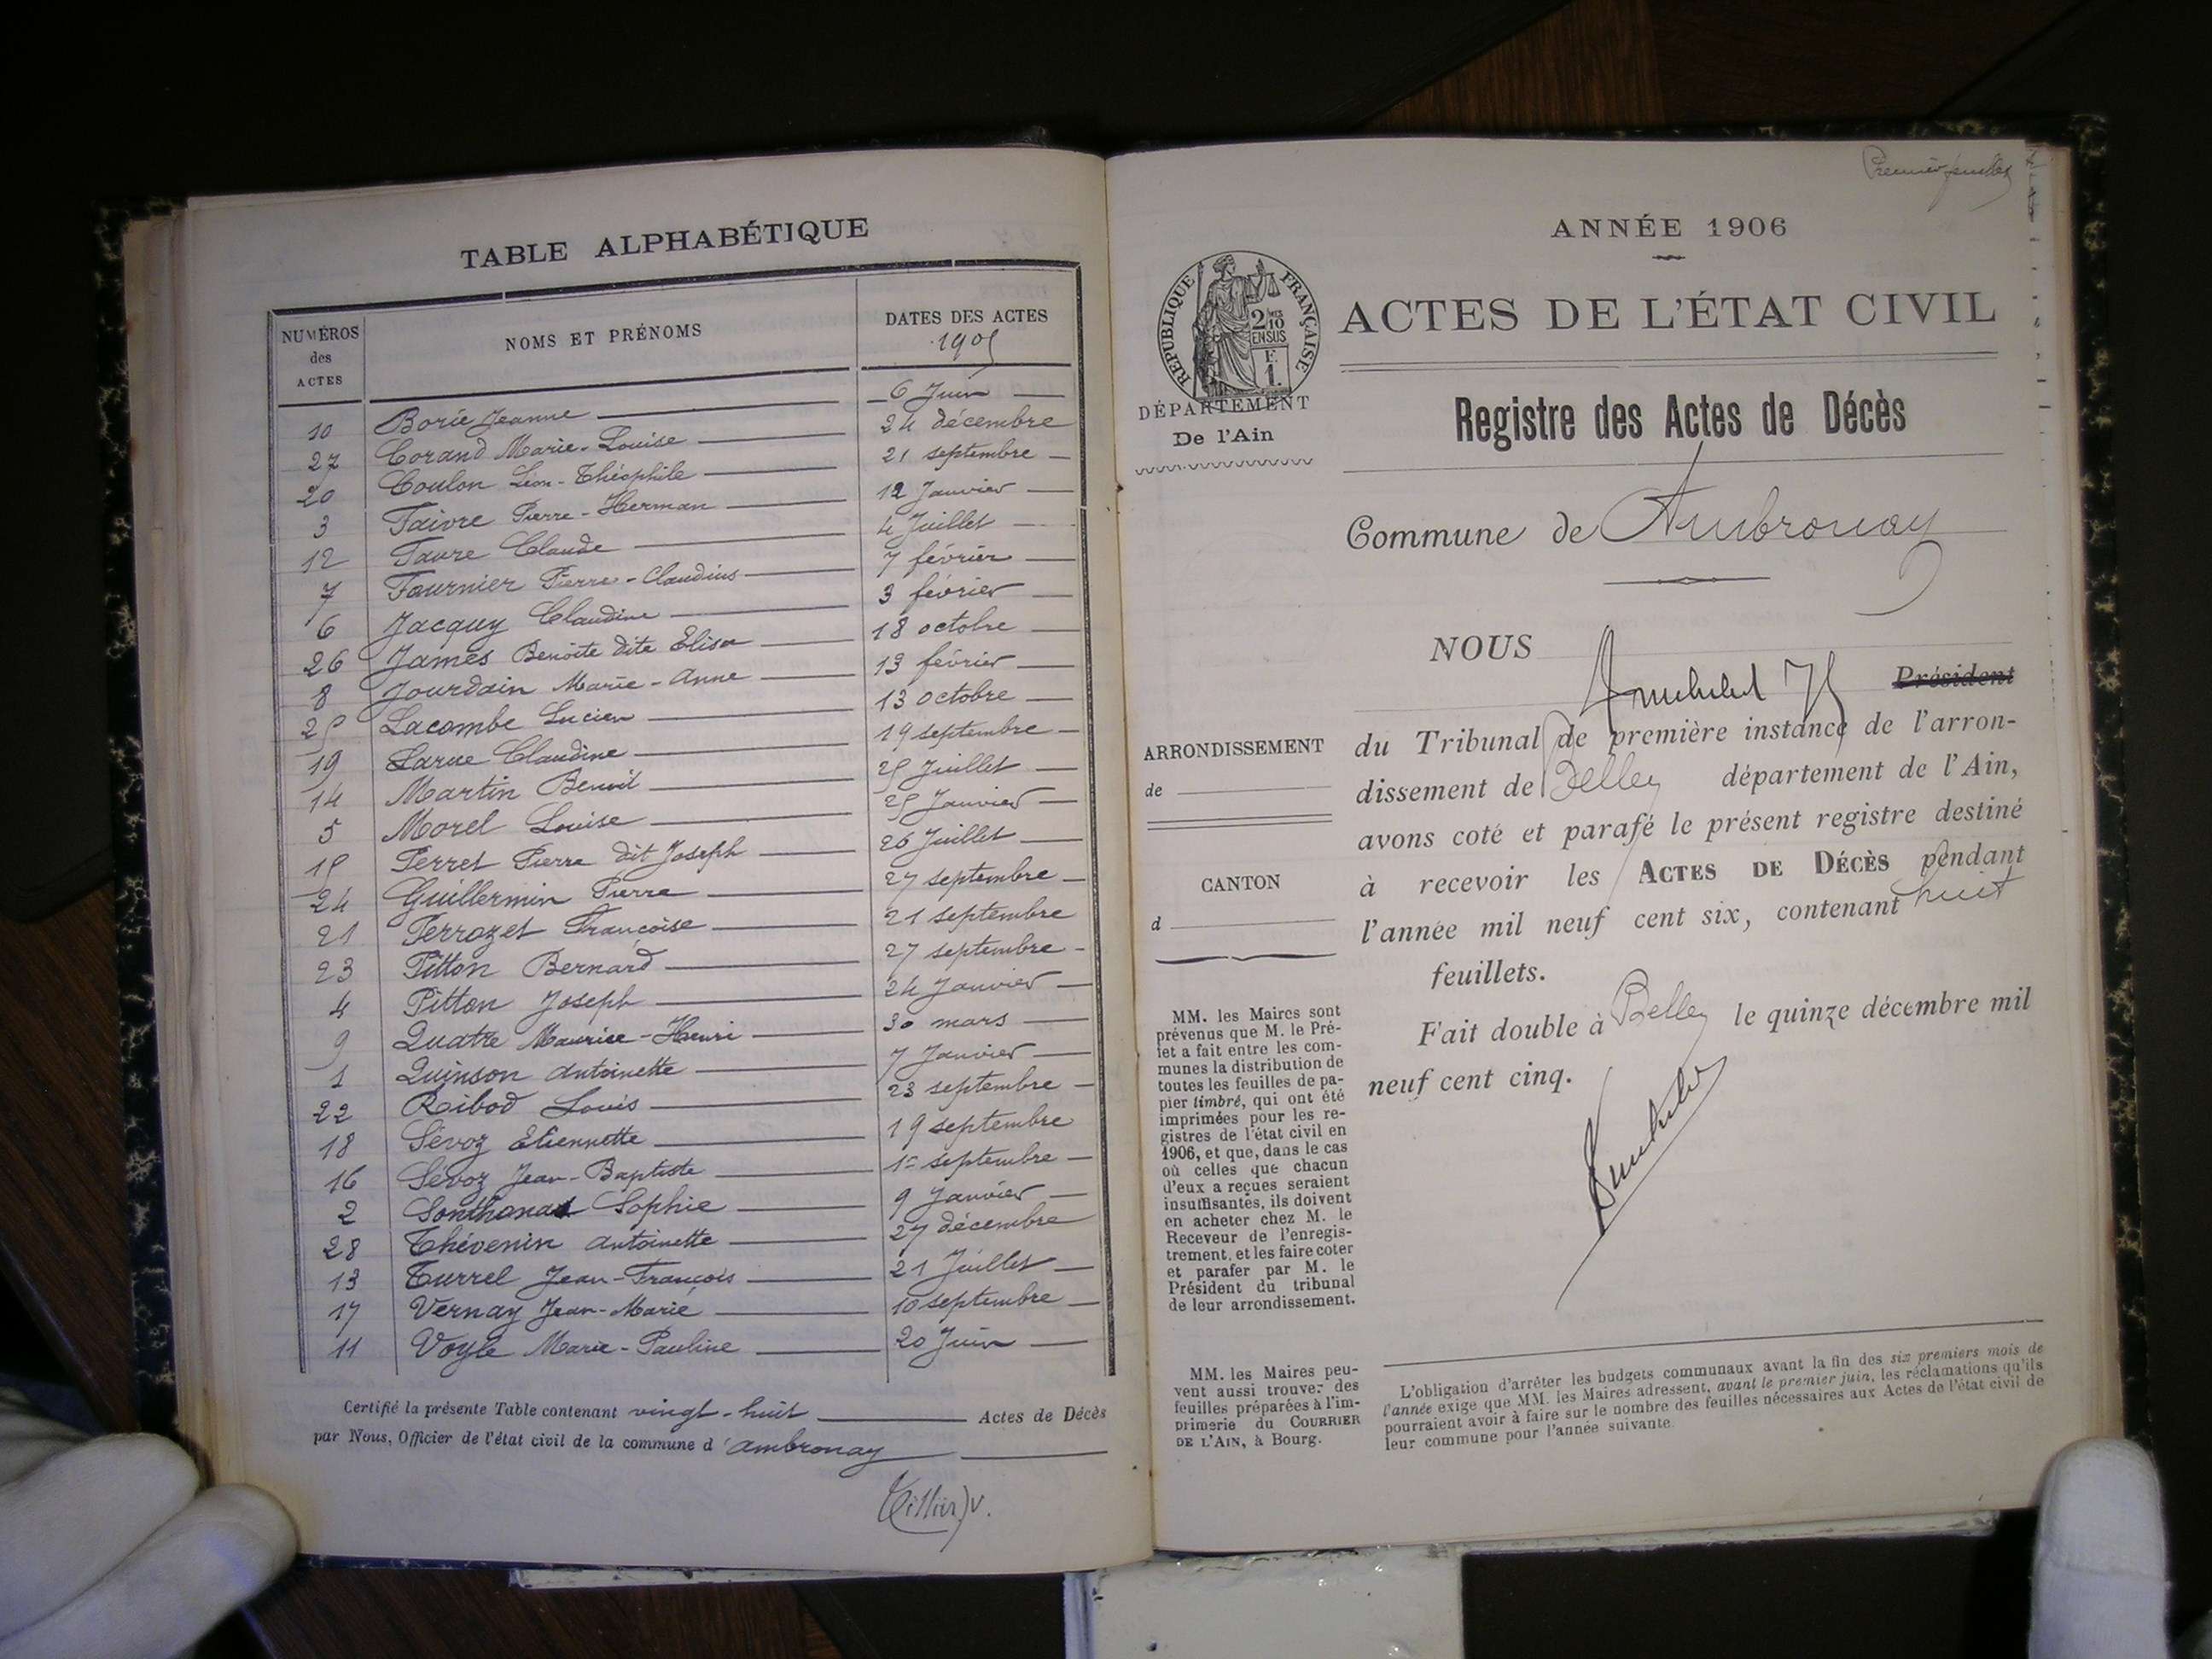 TABLE ALPHABÉTIQUE
NUMÉROS des ACTES
NOMS ET PRÉNOMS
DATES DES ACTES
1905
10 Borie Jeanne 6 Juin
27 Corand Marie-Louise 24 décembre
20 Coulon Léon-Théophile 21 septembre
3 Faivre Pierre-Herman 12 Janvier
12 Favre Claude 4 Juillet
7 Fournier Pierre-Claudius 7 février
6 Jacquy Claudine 3 février
26 James Benoîte dite Elisa 18 octobre
8 Jourdain Marie-Anne 13 février
25 Lacombe Lucien 13 octobre
19 Larue Claudine 19 septembre
14 Martin Benoit 25 Juillet
5 Morel Louise 25 Janvier
15 Perret Pierre dit Joseph 26 Juillet
24 Guillermin Pierre 27 septembre
21 Perrozet Françoise 21 septembre
23 Pitton Bernard 27 septembre
4 Pitton Joseph 24 Janvier
9 Quatre Maurice-Henri 30 mars
1 Quinson Antoinette 7 Janvier
22 Ribod Louis 23 septembre
18 Sévoz Etiennette 19 septembre
16 Sévoz Jean-Baptiste 1er septembre
2 Sonthonax Sophie 9 Janvier
28 Thévenin Antoinette 27 décembre
13 Turrel Jean-François 21 Juillet
17 Vernay Jean-Marie 10 septembre
11 Voyle Marie-Pauline 20 Juin
Certifié la présente Table contenant vingt-huit Actes de Décès
par Nous, Officier de l'état civil de la commune d'Ambronay
Premier feuillet
ANNÉE 1906
RÉPUBLIQUE FRANÇAISE
2 10 MES
EN SUS
F.
1.
ACTES DE L'ÉTAT CIVIL
DÉPARTEMENT
De l'Ain
Registre des Actes de Décès
Commune de Ambronay
NOUS
Président
ARRONDISSEMENT
de
CANTON
d
du Tribunal de première instance de l'arron-
dissement de Belley département de l'Ain,
avons coté et parafé le présent registre destiné
à recevoir les ACTES DE DÉCÈS pendant
l'année mil neuf cent six, contenant huit
feuillets.
Fait double à Belley le quinze décembre mil
neuf cent cinq.
MM. les Maires sont
prévenus que M. le Pré-
fet a fait entre les com-
munes la distribution de
toutes les feuilles de pa-
pier timbré, qui ont été
imprimées pour les re-
gistres de l'état civil en
1906, et que, dans le cas
où celles que chacun
d'eux a reçues seraient
insuffisantes, ils doivent
en acheter chez M. le
Receveur de l'enregis-
trement, et les faire coter
et parafer par M. le
Président du tribunal
de leur arrondissement.
MM. les Maires peu-
vent aussi trouver des
feuilles préparées à l'im-
primerie du COURRIER
DE L'AIN, à Bourg.
L'obligation d'arrêter les budgets communaux avant la fin des six premiers mois de
l'année exige que MM. les Maires adressent, avant le premier juin, les réclamations qu'ils
pourraient avoir à faire sur le nombre des feuilles nécessaires aux Actes de l'état civil de
leur commune pour l'année suivante.